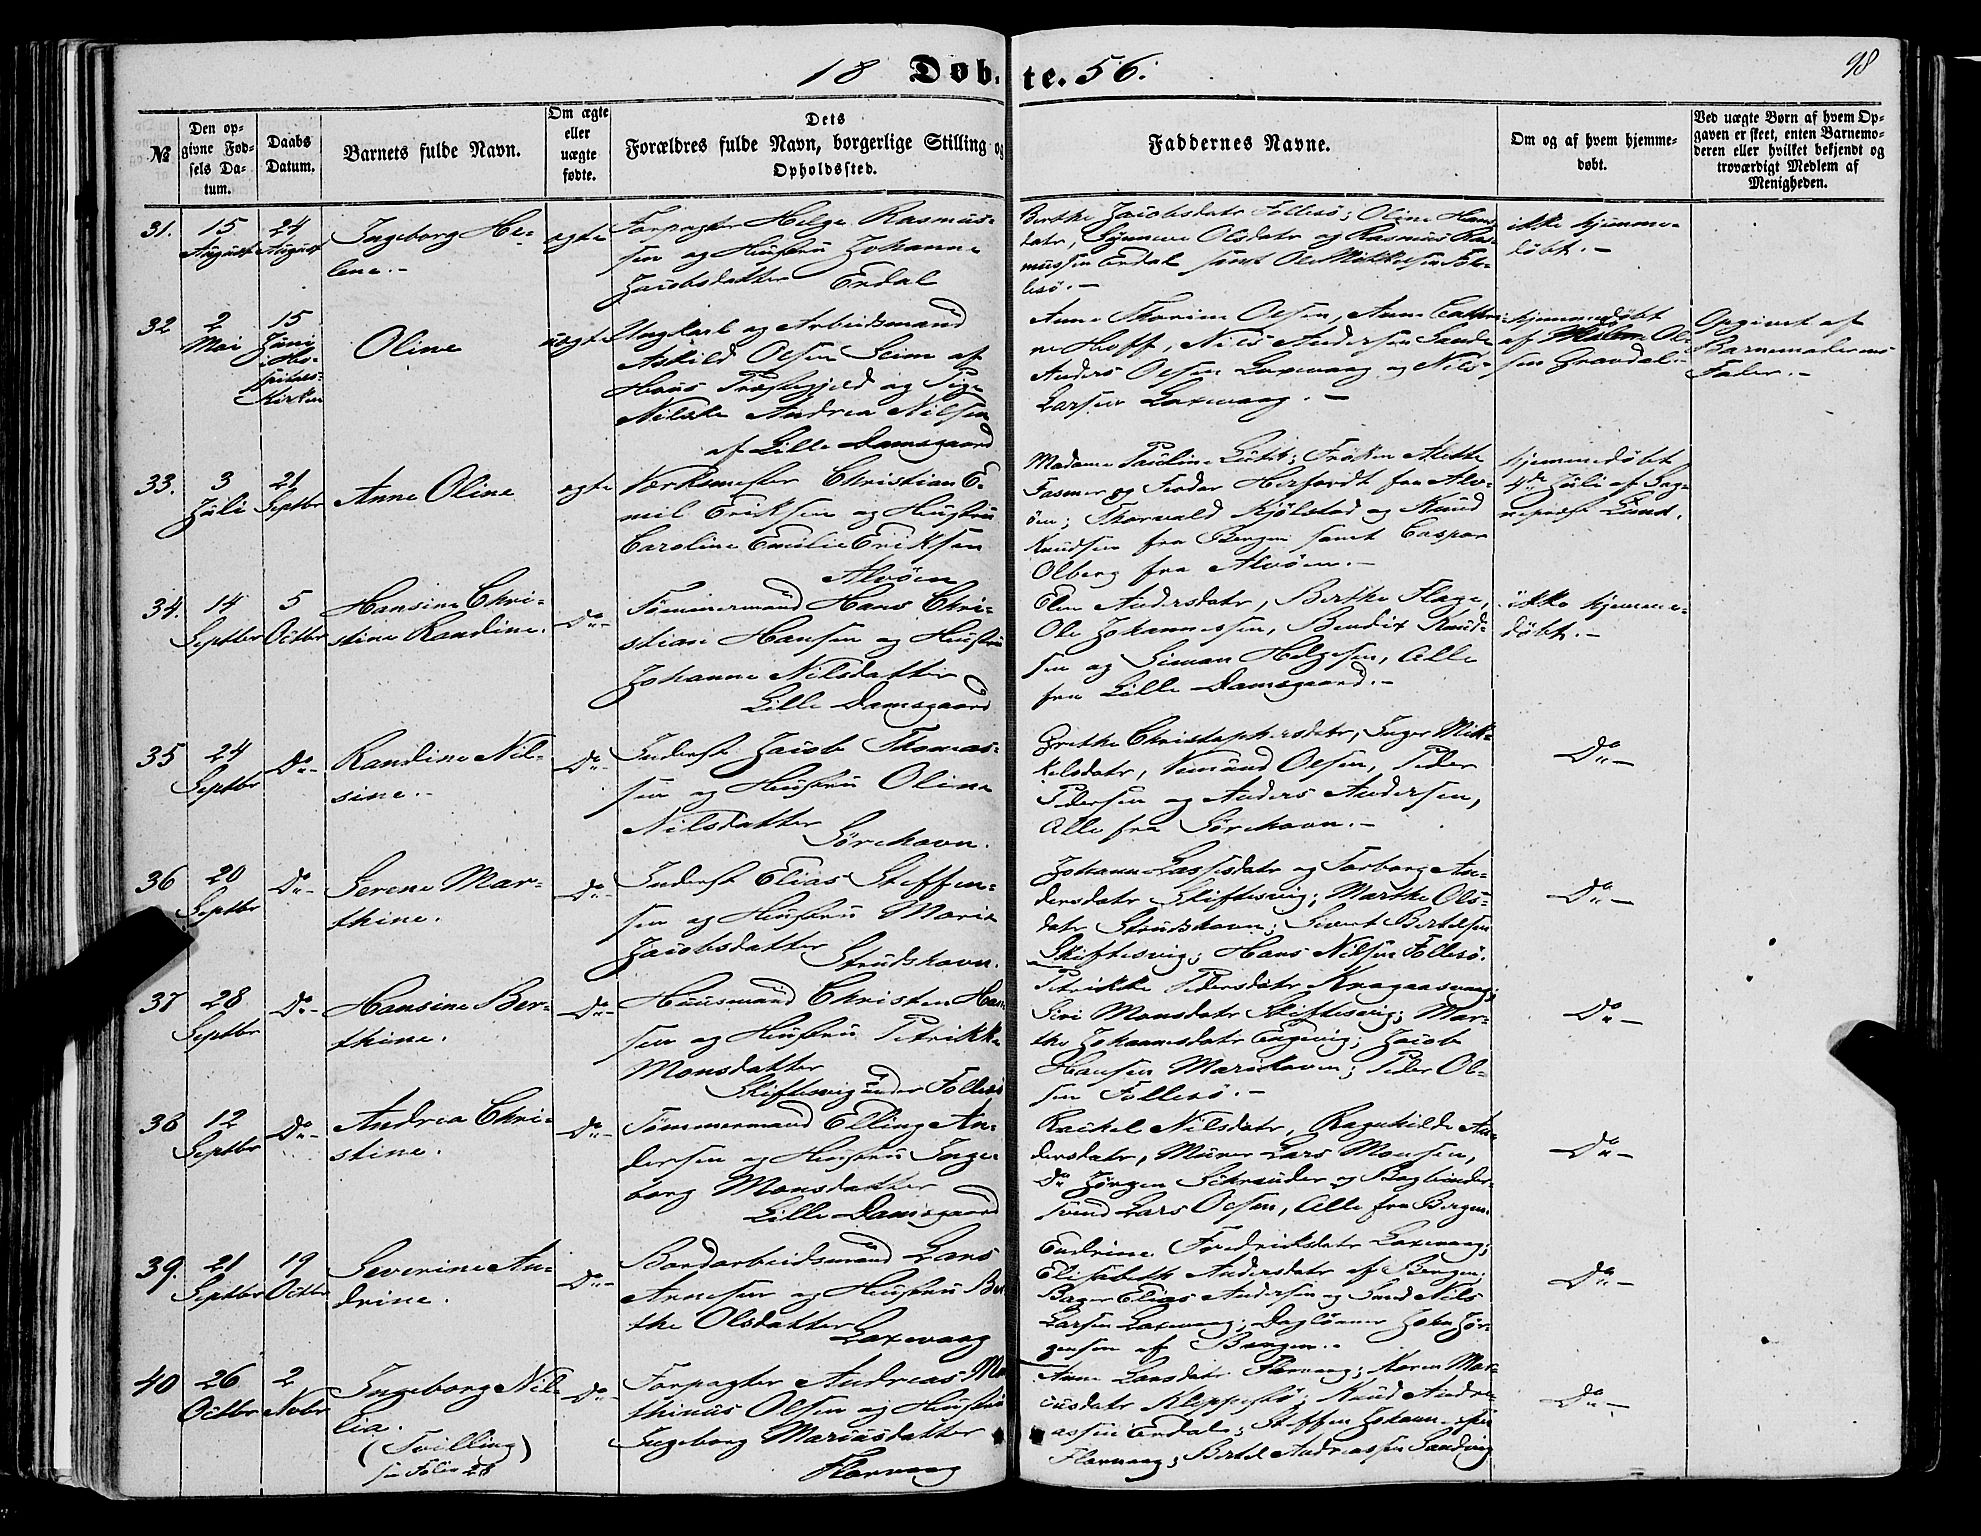 18 Døbte. 56.
98
№
Den opgivne Fødsels Datum.
Daabs Datum.
Barnets fulde Navn.
Om ægte eller uægte fødte.
Dets Forældres fulde Navn, borgerlige Stilling og Opholdssted.
Faddernes Navne.
Om og af hvem hjemmedøbt.
Ved uægte Børn af hvem Opgaven er skeet, enten Barnemoderen eller hvilket bekjendt og troværdigt Medlem af Menigheden.
31.
15 August
24 August
Ingeborg He-
lene.-
ægte
Forpagter Helge Rasmus-
sen og Hustru Johanne
Jacobsdatter Erdal
Berthe Jacobsdatr Follesø; Oline Hans
datr, Synneve Olsdatr og Rasmus Ras-
mussen Erdal samt Ole Mikkelsen Fol-
lesø.-
ikke hjemme-
døbt.-
32
2 Mai
15 Juni
i Ho-
spitals-
Kirken
Oline
uægte
Ungkarl og Arbeidsmand
Askild Olsen Seim af
Hous Præstegjeld og Pige
Nilske Andrea Nilsen
af Lille Damsgaard
Anne Olsen, Anne Cathri-
ne Hoff, Nils Andersen Sande
Anders Olsen Laxevaag og Nils
Larsen Laxevaag.-
hjemmedøbt
af Ol-
sen Gravdal.-
Opgivet af
Barnemoderens
Fader.-
33.
3 Juli
21 Septbr
Anne Oline
ægte
Værksmester Christian E-
mil Eriksen og Hustru
Caroline Emilie Eriksen
Alvøen
Madame Pauline ; Frøken Alette
Fasmer og Herfordt fra Alv-
øen; Thorvald Kjølstad og Knud
Knudsen fra Bergen samt Caspar
Olberg fra Alvøen.-
hjemmedøbt
4de Juli af Sog-
nepræst Lund.
34.
14 Septbr
5 Octbr
Hansine Chri-
stine Randine.
Do-
Tømmermand Hans Chri-
stian Hansen og Hustru
Johanne Nilsdatter
Lille Damsgaard
Elen Andersdatr, Berthe Flage,
Ole Johannessen, Bendix Knud-
sen og Simon Helgesen, Alle
fra Lille Damsgaard.-
ikke hjemme-
døbt.-
35
24 Septbr
Do-
Randine Nil-
sine.-
Do-
Inderst Jacob Thomas-
sen og Hustru Oline
Nilsdatter
Sørehavn.
Grethe Christophersdatr, Inger Mik-
kelsdatr, Vemund Olsen, Peder
Pedersen og Anders Andersen,
Alle fra Sørehavn.-
Do-
36
20 Septbr
Do-
Serene Mar-
thine.
Do-
Inderst Elias Steffen-
sen og Hustru Marie
Jacobsdatter
Strudshavn.
Johanne Lassesdatr og Torborg An-
dersdatr Skiftesvig; Marthe Ols-
datr Strudshavn; Sivert Bertelsen
Skiftesvig; Hans Nilsen Follesø.
Do-
37
28 Septbr
Do-
Hansine Ber-
thine.
Do-
Huusmand Christen Han-
sen og Hustru Petrikke
Monsdatter
Skiftesvig under Follesø
Petrikke Pedersdatr ;
Siri Monsdatr Skiftesvig; Mar-
the Johannesdatr Engevig; Jacob
Hansen Marikoven; Peder Ol-
sen Follesø.-
Do-
38
12 Septbr
Do-
Andrea Chri-
stine.
Do-
Tømmermand Elling An-
dersen og Hustru Inge-
borg Monsdatter
Lille Damsgaard
Rachel Nilsdatr, Ragnhilde An-
dersdatr, Murer Lars Monsen,
Do Jørgen Schrøuder og Bogbinder-
svend Lars Olsen, Alle fra Bergen.
Do-
39.
21 Septbr
19 Octbr
Severine An-
drine.
Do-
Bordarbeidsmand Lars
Arnesen og Hustru Ber-
the Olsdatter
Laxevaag
Endrine Fredriksdatr Laxevaag;
Elisabeth Andersdatr af Bergen;
Bager Elias Andersen og Smed Nils
Larsen Laxevaag; Dagløner John Jør-
gensen af Bergen.-
Do-
40
26 Octbr
2 Novbr
Ingeborg Nil-
lia.
(Tvilling)
see Folio 28
Do-
Forpagter Andreas Ma-
thinus Olsen og Hustru
Ingeborg Mariusdatter
Florvaag
Anne Larsdatr Florvaag; Karen Mar-
iusdatr Kleppestø; Knud Andre-
assen Erdal; Steffen Johannessen
Florvaag; Bertel Andreassen Sandvig
Do-